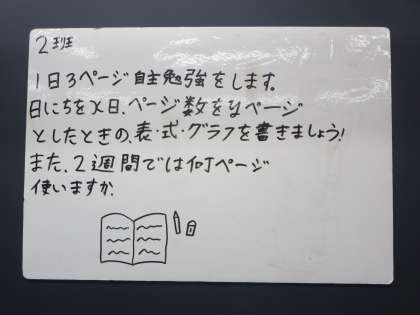 2班
1日3ページ自主勉強をします。
日にちをx日、ページ数をyページ
としたときの、表・式・グラフを書きましょう!
また、2週間では何ページ
使いますか。